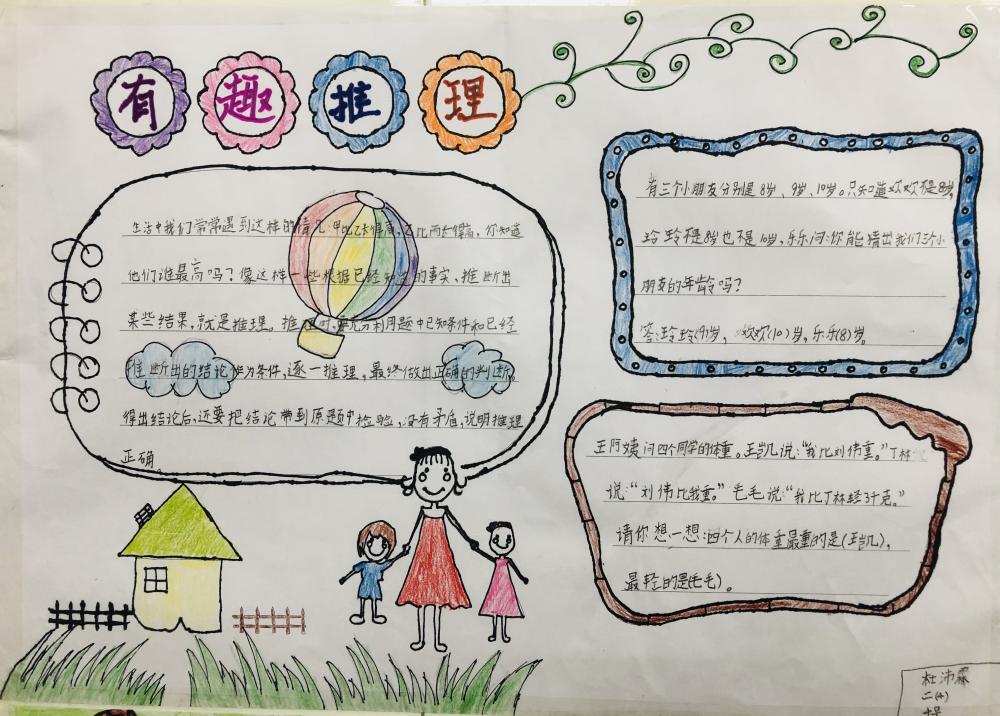 有趣推理
生活中我们常常遇到这样的情况:甲比乙长得高,乙比丙长得高,你知道
他们谁最高吗?像这样一些根据已经知道的事实、推断出
某些结果,就是推理。推理时,要充分利用题中已知条件和已经
推断出的结论作为条件,逐一推理,最终做出正确的判断。
得出结论后,还要把结论带到原题中检验,没有矛盾,说明推理
正确。
有三个小朋友分别是8岁、9岁、10岁。只知道欢欢不是8岁,
玲玲不是8岁也不是10岁,乐乐问:你能猜出我们三个小
朋友的年龄吗?
答:玲玲(9)岁,欢欢(10)岁,乐乐(8)岁。
王阿姨问四个同学的体重。王凯说:“我比刘伟重。”丁林
说:“刘伟比我重。”毛毛说:“我比丁林轻3千克。”
请你想一想:四个人的体重最重的是(王凯),
最轻的是(毛毛)。
杜沛霖
二(4)